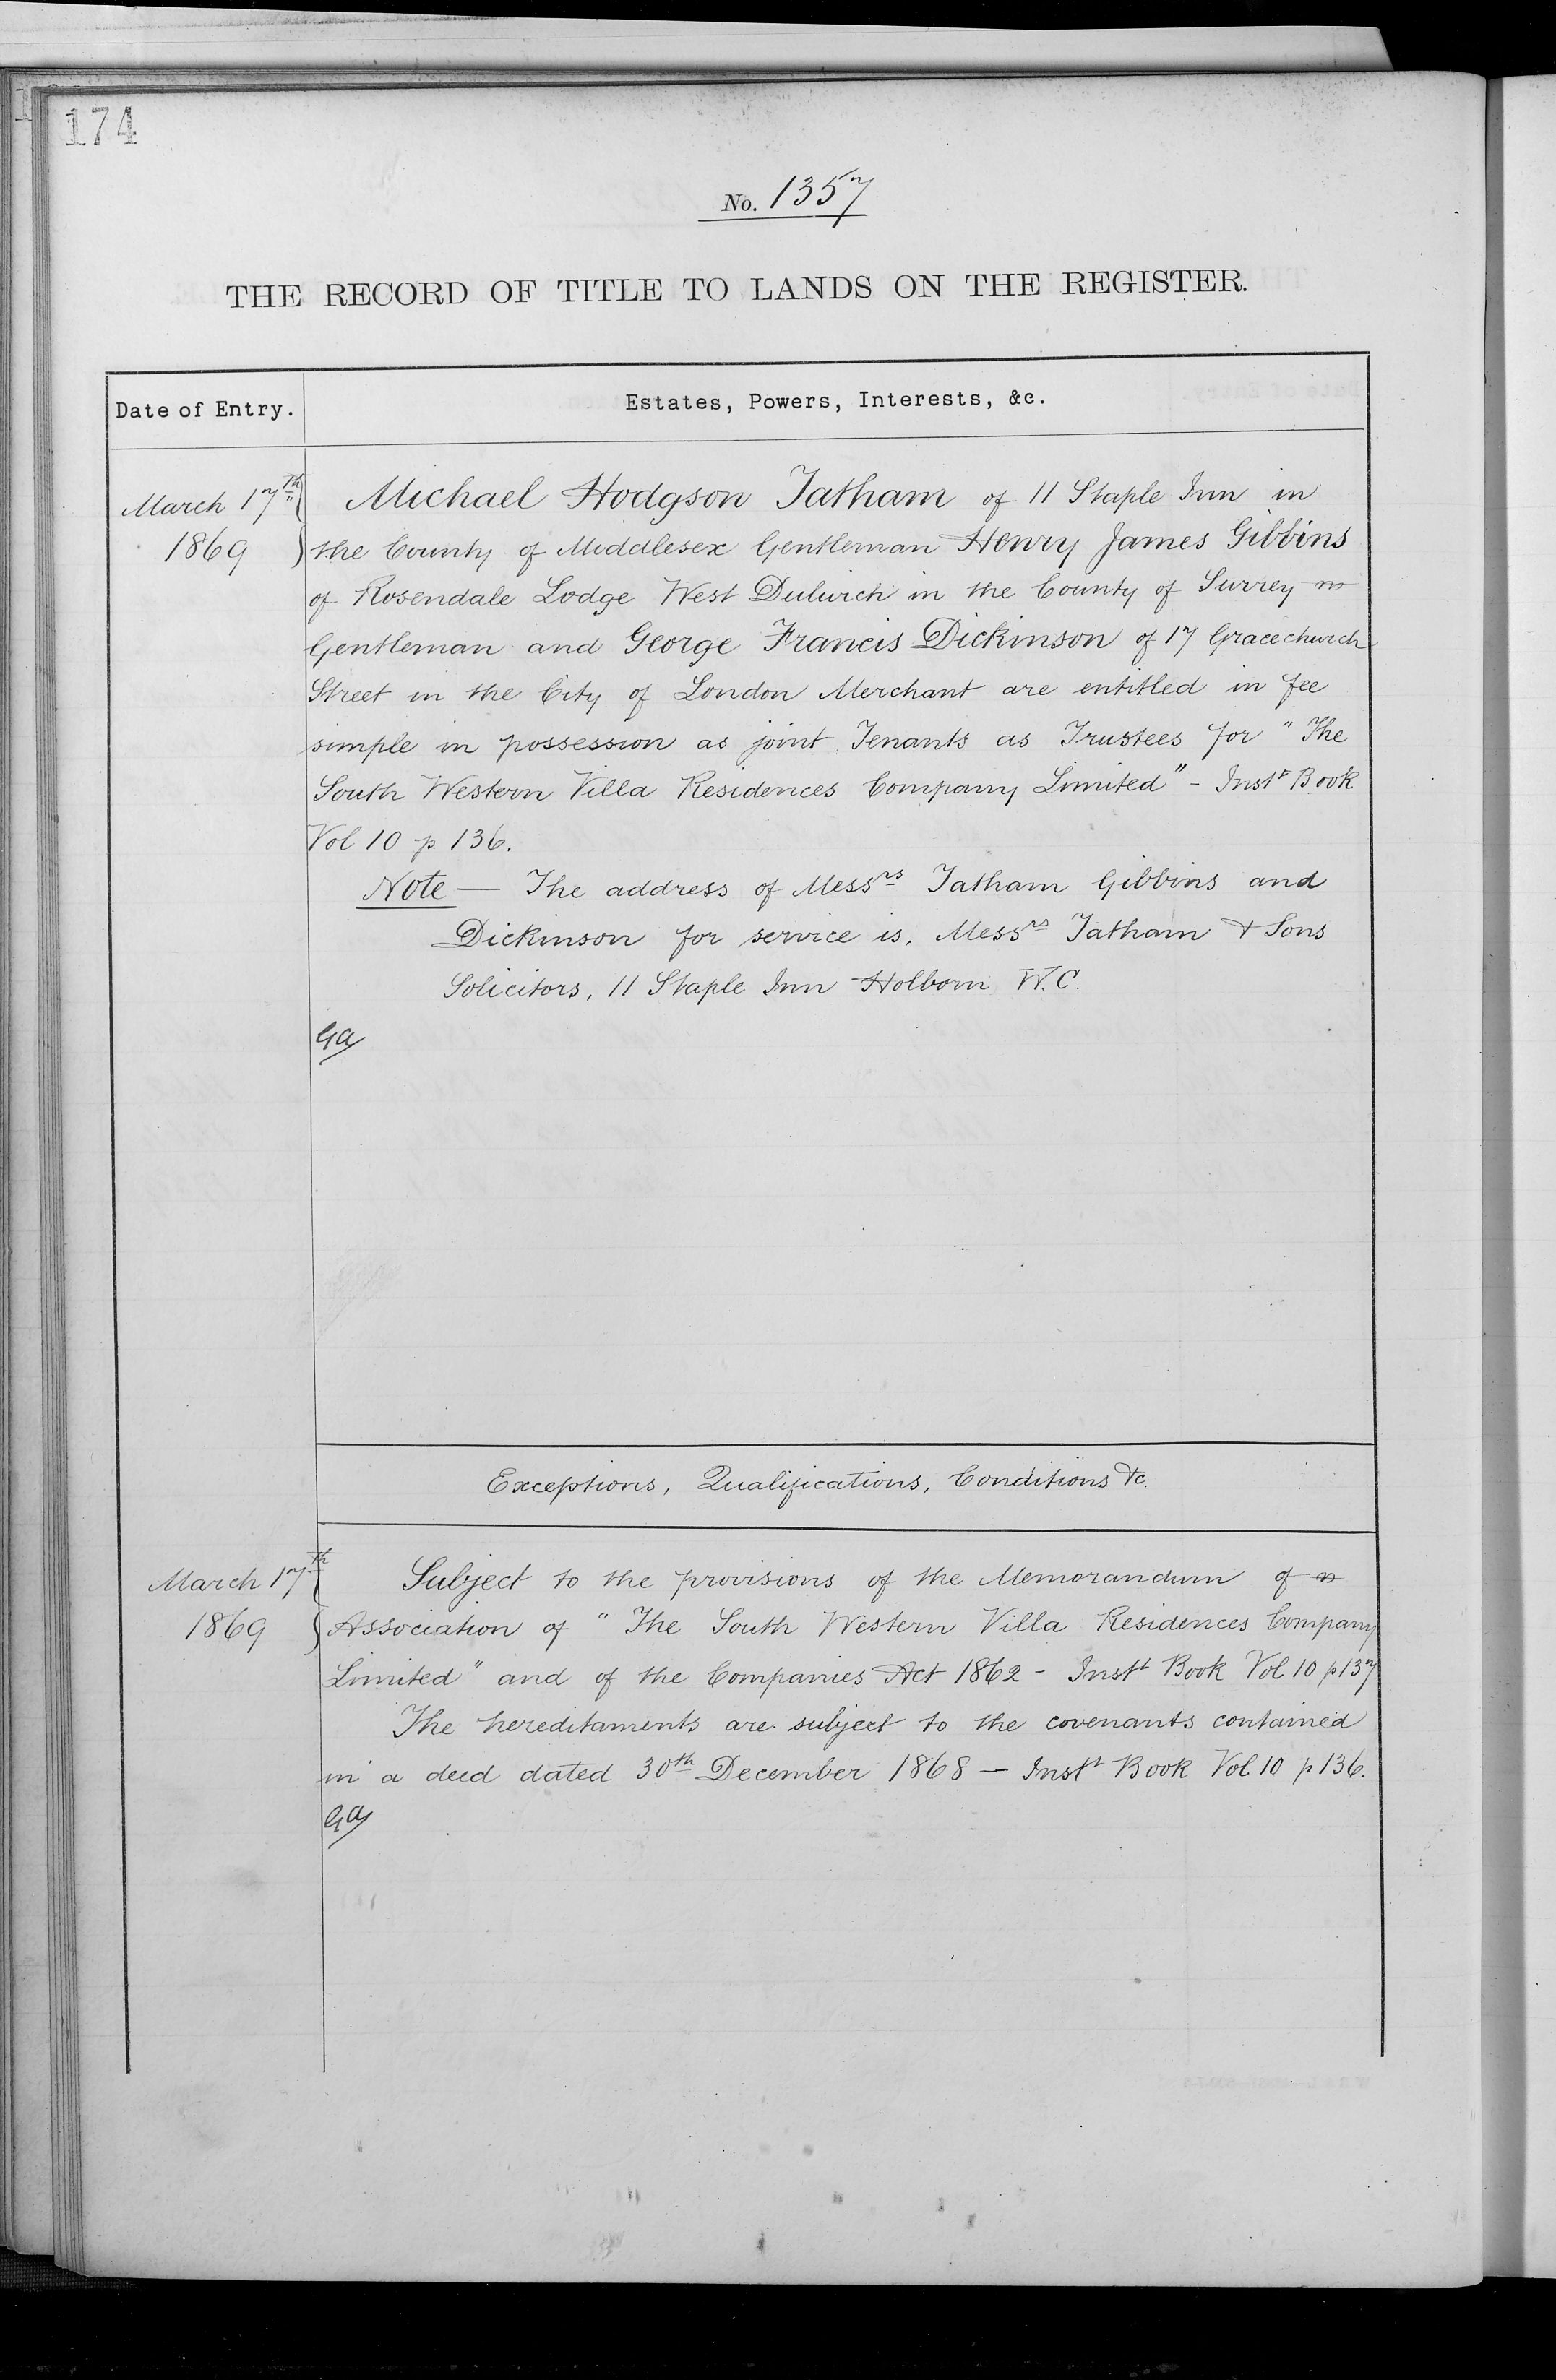 174
No. 1357
THE RECORD OF TITLE TO LANDS ON THE REGISTER.
Date of Entry.
Estates, Powers, Interests, &c.
March 17th
1869
Michael Hodgson Tatham of 11 Staple Inn in
the County of Middlesex Gentleman Henry James Gibbins
of Rosendale Lodge West Dulwich in the County of Surrey
Gentleman and George Francis Dickinson of 17 Gracechurch
Street in the City of London Merchant are entitled in fee
simple in possession as joint Tenants as Trustees for "The
South Western Villa Residences Company Limited" - Inst Book
Vol 10 p 136.
Note — The address of Messrs Tatham Gibbins and
Dickinson for service is, Messrs Tatham & Sons
Solicitors, 11 Staple Inn Holborn W.C.
Exceptions, Qualifications, Conditions &c.
March 17th
1869
Subject to the provisions of the Memorandum of
Association of "The South Western Villa Residences Company
Limited" and of the Companies Act 1862 - Inst Book Vol 10 p 137
The hereditaments are subject to the covenants contained
in a deed dated 30th December 1868 — Inst Book Vol 10 p 136.